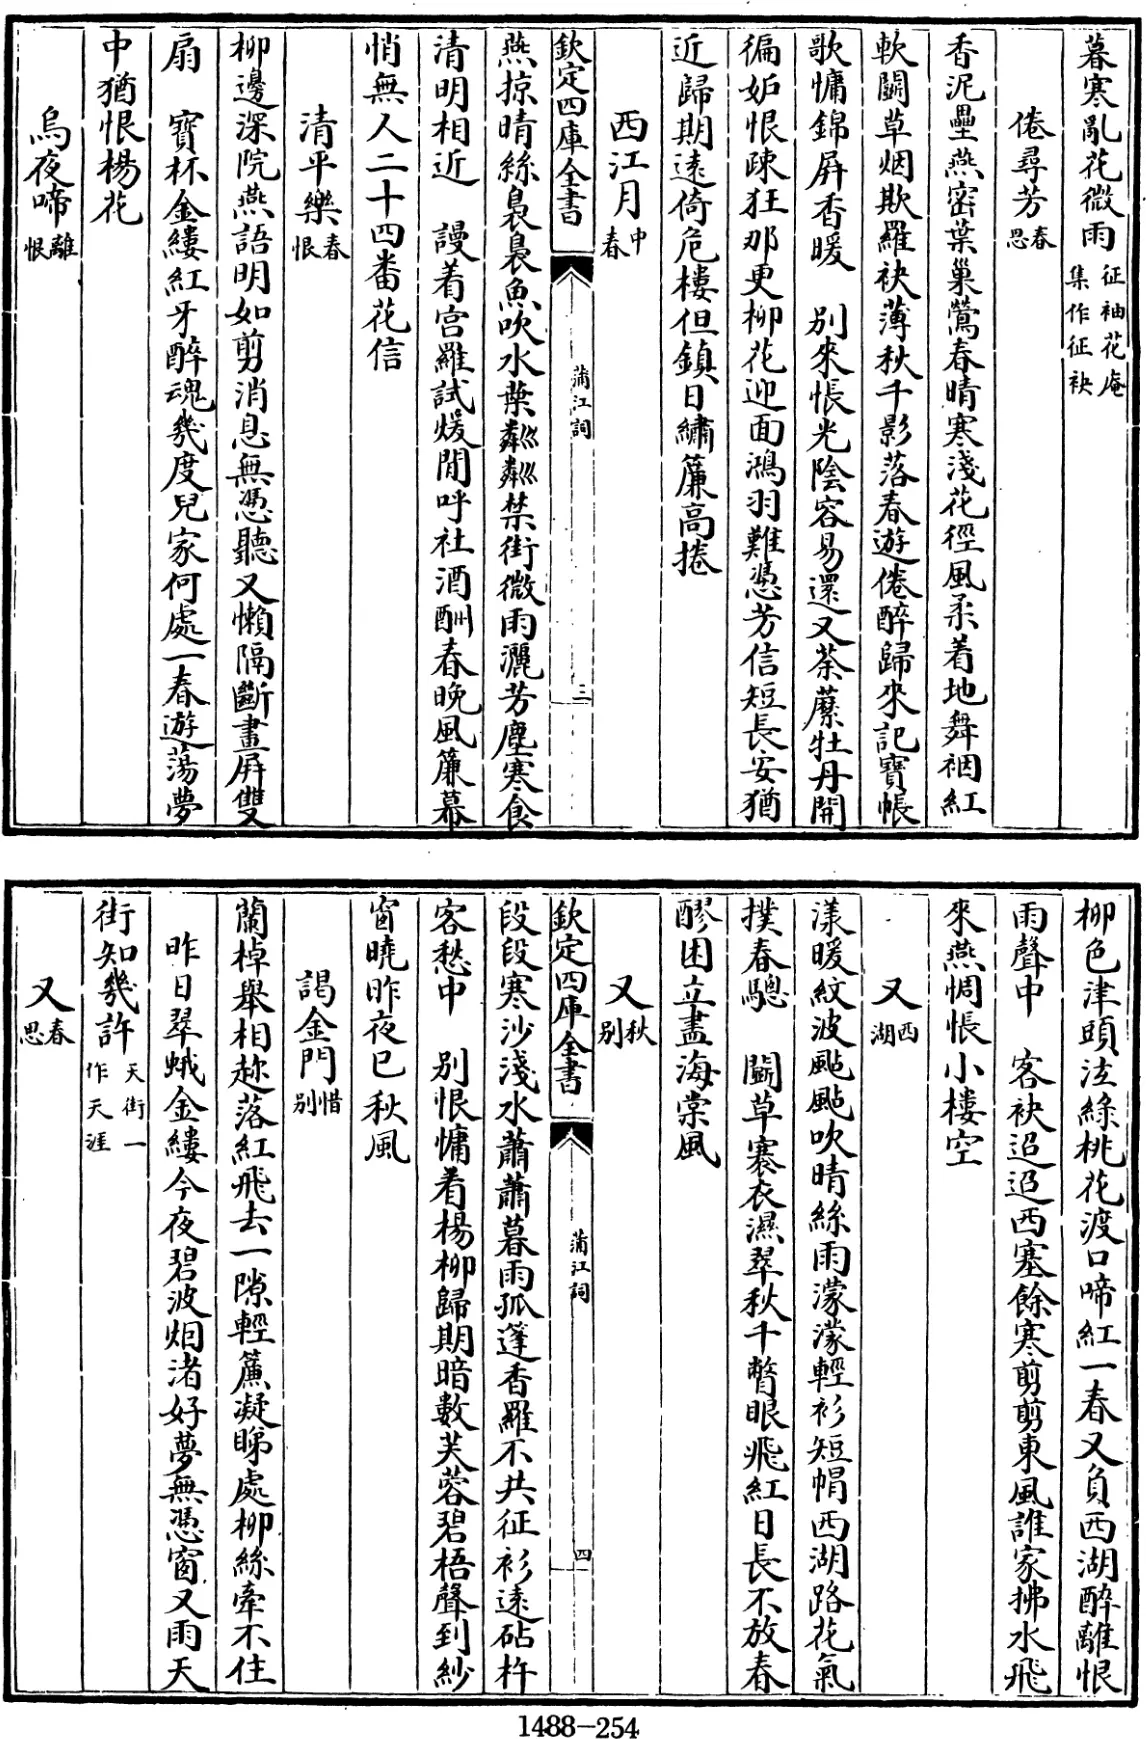 暮寒亂花微雨征袖花庵集作征袂
倦尋芳春思
香泥壘燕密葉巢鶯春晴寒淺花徑風柔着地舞裀紅
軟鬬草烟欺羅袂薄秋千影落春遊倦醉歸來記寶帳
歌慵錦屏香暖　别來悵光陰容易還又荼䕷牡丹開
徧妬恨疎狂那更柳花迎面鴻羽難憑芳信短長安猶
近歸期遠倚危樓但鎮日繡簾高捲
西江月中春
欽定四庫全書
蒲江詞
三
燕掠晴絲裊裊魚吹水葉粼粼禁街微雨灑芳塵寒食
清明相近　謾着宫羅試煖閒呼社酒酬春晚風簾幕
悄無人二十四番花信
清平樂春恨
柳邊深院燕語明如剪消息無憑聽又懶隔斷畫屏雙
扇　寳杯金縷紅牙醉魂幾度兒家何處一春遊蕩夢
中猶恨楊花
烏夜啼離恨
柳色津頭泫綠桃花渡口啼紅一春又負西湖醉離恨
雨聲中　客袂迢迢西塞餘寒剪剪東風誰家拂水飛
來燕惆悵小樓空
又西湖
漾暖紋波颭颭吹晴絲雨濛濛輕衫短帽西湖路花氣
撲春驄　鬬草褰衣濕翠秋千瞥眼飛紅日長不放春
醪困立盡海棠風
又秋别
欽定四庫全書
蒲江詞
四
段段寒沙淺水蕭蕭暮雨孤篷香羅不共征衫遠砧杵
客愁中　别恨慵看楊柳歸期暗數芙蓉碧梧聲到紗
窗曉昨夜已秋風
謁金門惜别
蘭棹舉相趂落紅飛去一隙輕簾凝睇處柳絲牽不住
昨日翠蛾金縷今夜碧波烟渚好夢無憑窗又雨天
街知幾許天街一作天涯
又春思
1488-254